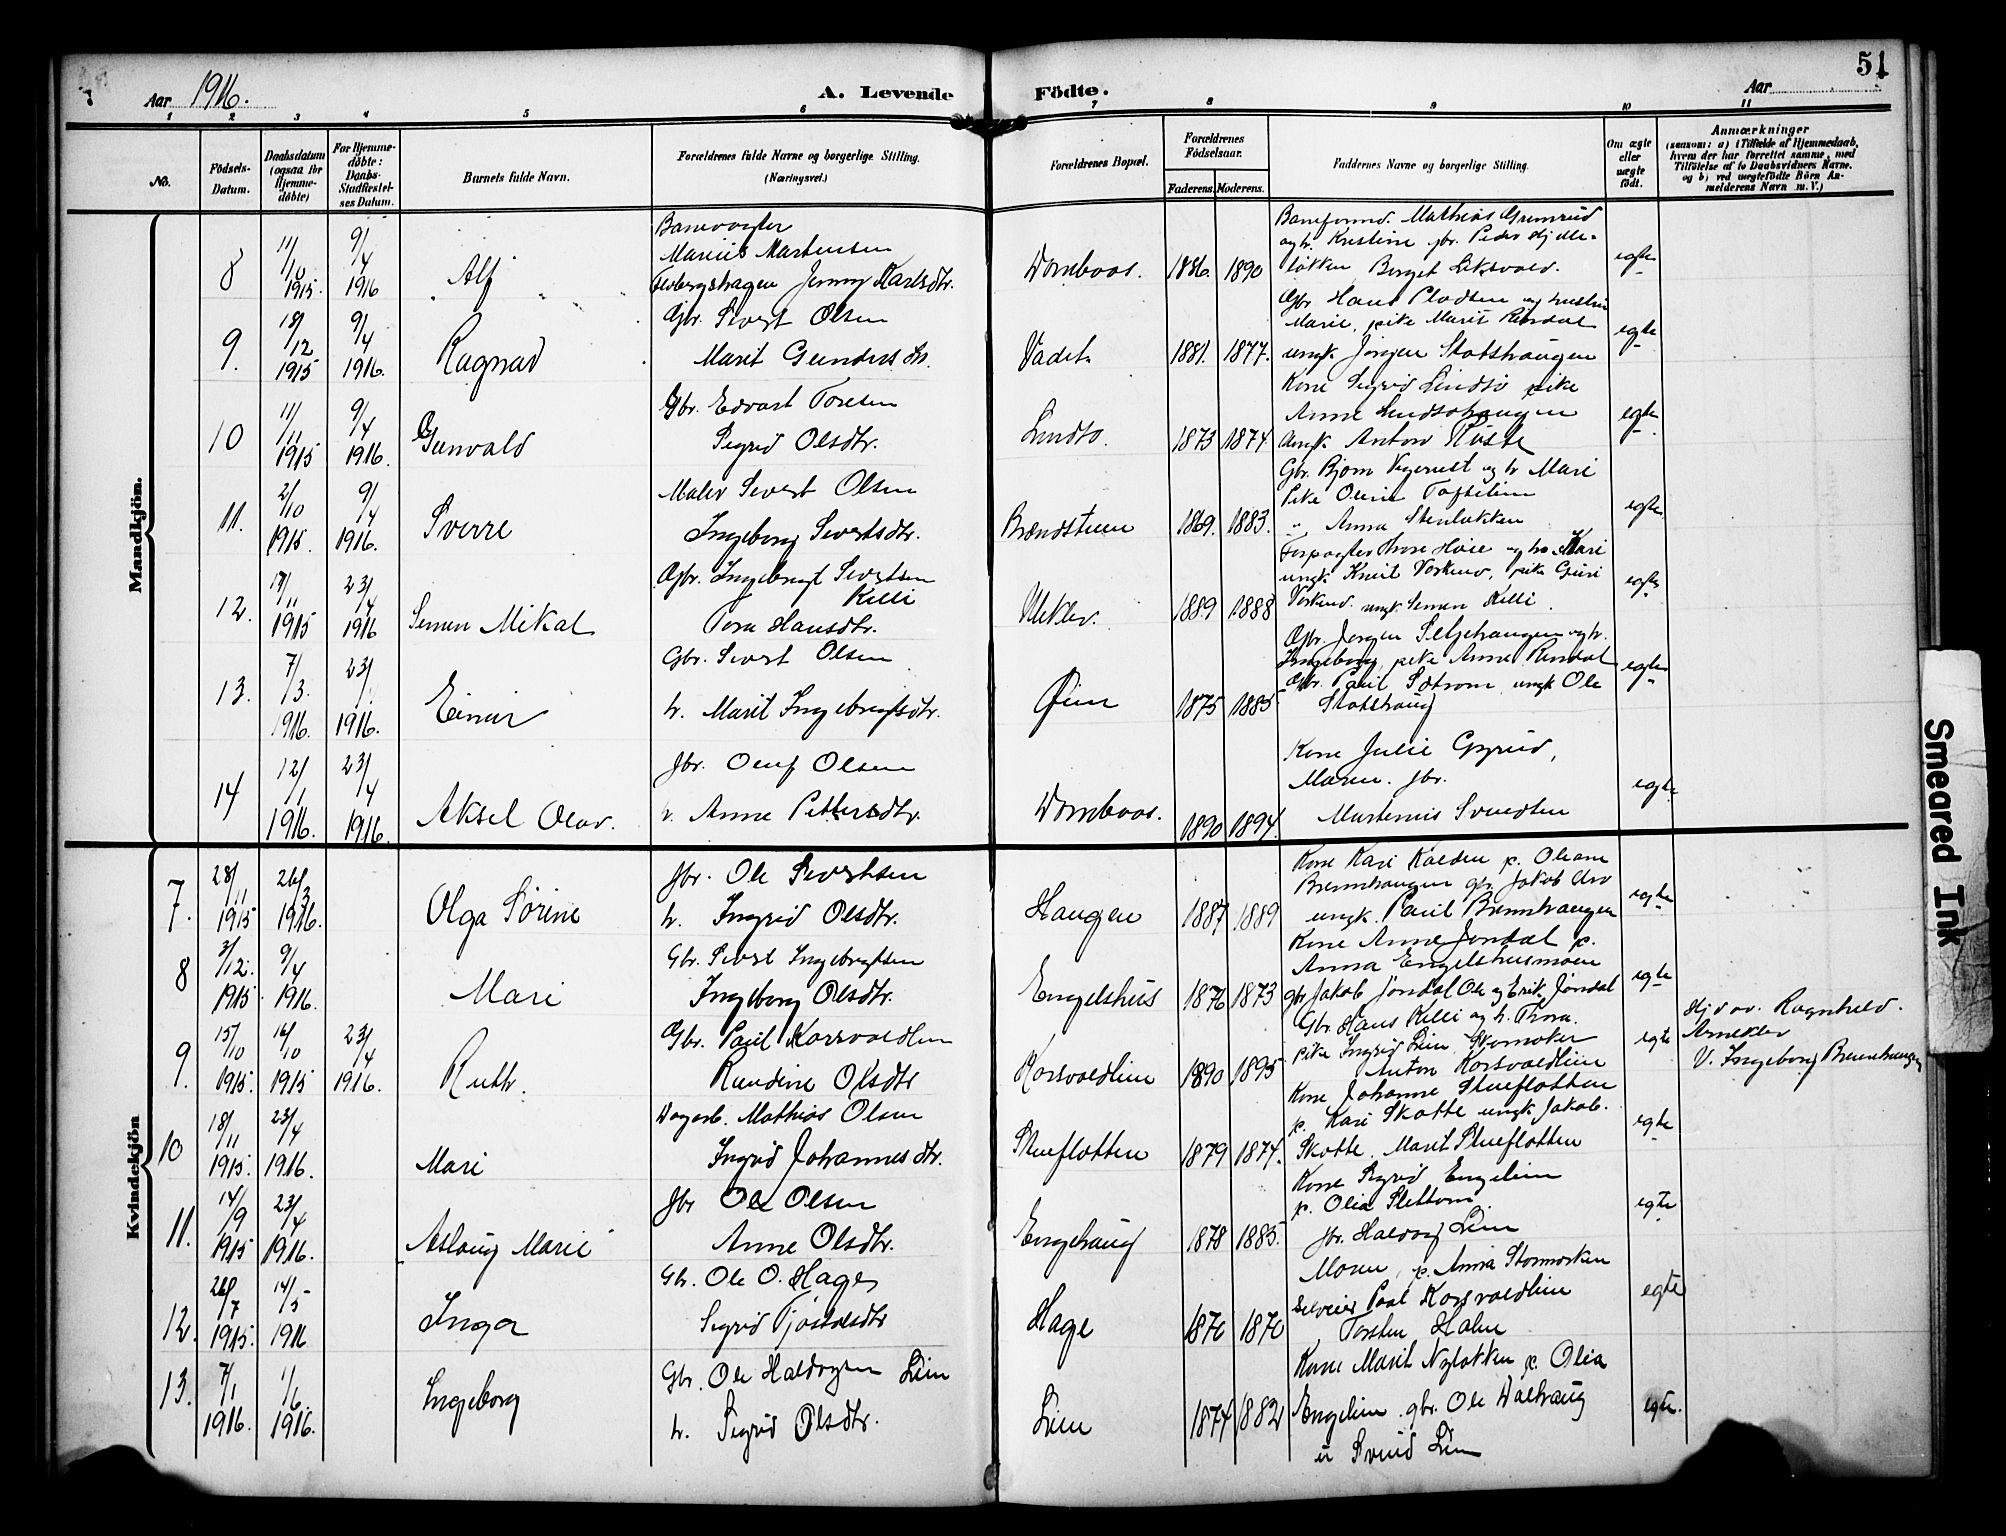 51
Aar 1916.
A. Levende Födte.
Aar
1 2 3 4 5 6 7 8 9 10 11
No.
Födsels-Datum.
Daabsdatum (ogsaa for Hjemme-døbte)
For Hjemme-døbte: Daabs-Stadfæstel-ses Datum.
Barnets fulde Navn.
Forældrenes fulde Navne og borgerlige Stilling. (Næringsvei.)
Forældrenes Bopæl.
Forældrenes Födselsaar.
Faderens. Moderens.
Faddernes Navne og borgerlige Stilling.
Om ægte eller uægte födt.
Anmærkninger
(saasom: a) i Tilfælde af Hjemmedaab, hvem der har forrettet samme, med Tilföielse af to Daabsvidners Navne, og b) ved uægtefödte Börn An-melderens Navn m. V.)
Mandkjön.
8 11/10 1915. 9/4 1916 Alf
Banevogter
Marius Martensen
Jenny Karlsdtr.
Dombaas. 1886. 1890
Baneformd. Mathias Grimrud
og h. Kristine gbr. Peder Hjelle-
løkken Berget Liksvold.
egte
9. 18/12 1915 9/4 1916. Ragnad
Gbr. Sivert Olsen
Marit Gundersdtr.
1881. 1877.
Gbr Hans Plodsen og hustru
Marie, pike Marit Rindal
ungk Jørgen Slotshaugen
egte
10 11/11 1915 9/4 1916. Gunvald
Gbr. Edvart Toresen
Sigrid Olsdtr.
Lindsø. 1873 1874
Kone Sigrid Lindsø pike
Anne Lindsøhaugen
ungk Anton
egte
11. 2/10 1915. 9/4 1916. Sverre
Maler Sivert Olsen
Ingeborg Sivertsdtr.
Brændsteen 1869. 1883.
Gbr. Bjørn og h Mari
Pike Oline
" Anna Stenløkken
egte
12. 1915 23/4 1916 Simen Mikal
Gbr. Ingebrigt Sivertsen
Killi
Tora Hansdtr.
Uleklev. 1889 1888
Forpagter Thore Høie og h Mari
ungk Knut pike Guri
ungk Simen Killi.
egte
13. 7/3. 1916. 23/ 1916. Einar
Gbr. Sivert Olsen
h. Marit Ingebrigtsdtr.
Øien 1875 1885
Gbr. Jørgen Seljehaugen og h.
Ingeborg, pike Anne Rindal
Gbr. Paul ungk Ole
Slotshaug
egte
14 12/1 1916. 23/4 1916. Aksel Olav.
Jbr. Oluf Olsen
h. Anne Pettersdtr.
Dombaas. 1890 1894.
Kone Julie
Maren. Jbr.
Martenius Svendsen
egte
Kvindekjön
7. 28/11 1915 26/3 1916. Olga Sørine
Jbr. Ole Sivertsen
h. Ingrid Olsdtr.
Haugen 1887 1889
Kone Kari Kolden p. Oliane
Brennhaugen gbr. Jakob
ungk. Paul Brennhaugen
egte
8 3/12. 1915. 9/4 1916. Mari
Gbr. Sivert Ingebrigtsen
Ingeborg Olsdtr.
Engelshus 1876 1873
Kone Anne Jondal p.
Anna Engelshusmoen
gbr Jakob Jondal Ole og Erik Jondal
egte
9. 15/10 1915. 16/10 1915 23/4 1916. Ruth.
Gbr. Paul Korsvoldlien
Randine Olsdtr
Korsvoldlien 1890 1895
Gbr Hans Killi og h. Thora.
pike Ingrid Lien Skomaker
Anton Korsvoldlien
egte
Hjd av. Ragnhild.
Arneklev
V. Ingeborg Brennhaugen
10 18/11 1915. 23/4 1916. Mari
Dagarb. Mathias Olsen
Ingrid Johannesdtr.
Stueflotten 1879 1874.
Kone Johanne Stueflotten
p. Kari Skotte ungk Jakob.
Skotte. Marit Stueflotten
egte
11. 14/9 1915 23/4 1916. Aslaug Marie
Jbr Ole Olsen
Anne Olsdtr.
Engehaug 1878 1885.
Kone Sigrid Engelien
p. Olia Slettom
Jbr. Haldog Lien
egte
12. 26/7 1915 14/5 1916 Inga
Gbr. Ole O. Hage
Sigrid Tjøstolsdtr
Hage 1870 1870
Moren, p. Anna Stormorken
Selveier Paal Korsvoldlien
Torsten Holen
egte
13. 7/1 1916. 1/6 1916. Ingeborg
Gbr. Ole Haldogsen Lien
h. Sigrid Olsdtr.
Lien 1874 1882
Kone Marit Nyløkken p. Olia
Engelien gbr. Ole Dalhaug
u Svend Lien
egte.
Smeared Ink